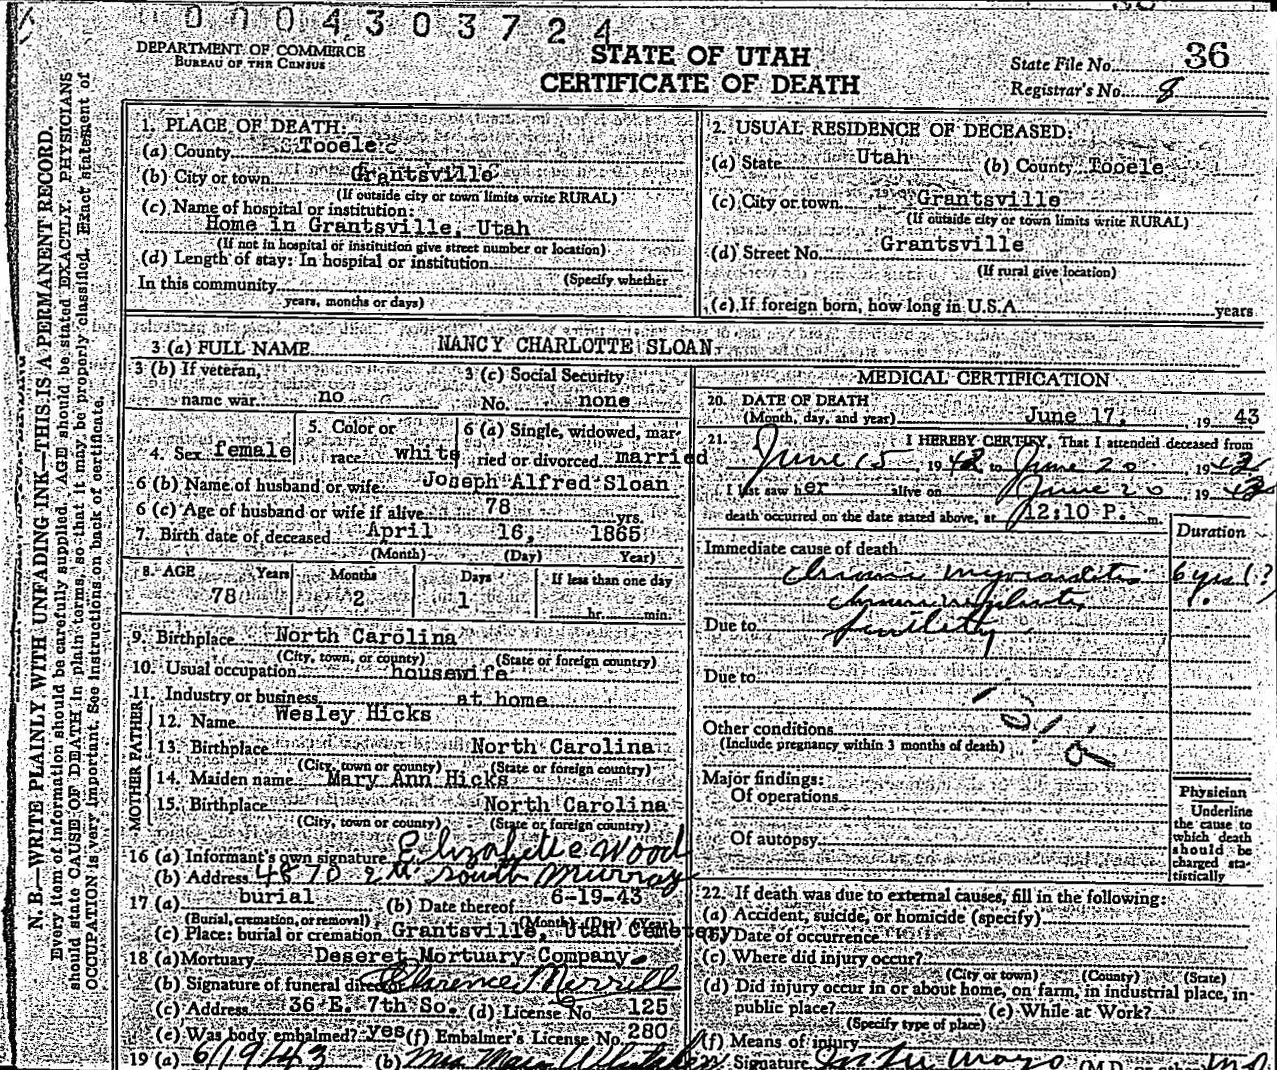 0 0 0 4 3 0 3 7 2 4
DEPARTMENT OF COMMERCE
BUREAU OF THE CENSUS
STATE OF UTAH
CERTIFICATE OF DEATH
State File No. 36
Registrar's No. 8
N. B.—WRITE PLAINLY, WITH UNFADING INK—THIS IS A PERMANENT RECORD.
Every item of information should be carefully supplied. AGE should be stated EXACTLY. PHYSICIANS
should state CAUSE OF DEATH in plain terms, so that it may be properly classified. Exact statement of
OCCUPATION is very important. See instructions on back of certificate.
1. PLACE OF DEATH:
(a) County Tooele
(b) City or town Grantsville
(If outside city or town limits write RURAL)
(c) Name of hospital or institution:
Home in Grantsville, Utah
(If not in hospital or institution give street number or location)
(d) Length of stay: In hospital or institution
(Specify whether
In this community
years, months or days)
2. USUAL RESIDENCE OF DECEASED:
(a) State Utah (b) County Tooele
(c) City or town Grantsville
(If outside city or town limits write RURAL)
(d) Street No. Grantsville
(If rural give location)
(e) If foreign born, how long in U.S.A. years
3 (a) FULL NAME NANCY CHARLOTTE SLOAN
3 (b) If veteran, name war no
3 (c) Social Security No. none
4. Sex female
5. Color or race white
6 (a) Single, widowed, married or divorced married
6 (b) Name of husband or wife Joseph Alfred Sloan
6 (c) Age of husband or wife if alive 78 yrs.
7. Birth date of deceased April 16, 1865
(Month) (Day) Year)
8. AGE Years Months Days If less than one day
78 2 1 hr. min.
9. Birthplace North Carolina
(City, town, or county) (State or foreign country)
10. Usual occupation housewife
11. Industry or business at home
FATHER
12. Name Wesley Hicks
13. Birthplace North Carolina
(City, town or county) (State or foreign country)
MOTHER
14. Maiden name Mary Ann Hicks
15. Birthplace North Carolina
(City, town or county) (State or foreign country)
16 (a) Informant's own signature Elizabeth Wood
(b) Address 4870 South Murray
17 (a) burial (b) Date thereof 6-19-43
(Burial, cremation, or removal) (Month) (Day) (Year)
(c) Place: burial or cremation Grantsville, Utah Cemetery
18 (a) Mortuary Deseret Mortuary Company.
(b) Signature of funeral director Clarence Merrill
(c) Address 36 E. 7th So. (d) License No. 125
(e) Was body embalmed? yes (f) Embalmer's License No. 280
19 (a) 6/19/43 (b) Mrs
MEDICAL CERTIFICATION
20. DATE OF DEATH
(Month, day, and year) June 17, 19 43
21. I HEREBY CERTIFY, That I attended deceased from
June 15 19 42 to June 20 19 42
I last saw her alive on June 20, 19 42
death occurred on the date stated above, at 12:10 P. m.
Duration
Immediate cause of death
chronic myocarditis 6 yrs (?)
Due to
Due to
Other conditions
(Include pregnancy within 3 months of death)
Major findings:
Of operations
Of autopsy
Physician
Underline
the cause to
which death
should be
charged sta-
tistically
22. If death was due to external causes, fill in the following:
(a) Accident, suicide, or homicide (specify)
(b) Date of occurrence
(c) Where did injury occur?
(City or town) (County) (State)
(d) Did injury occur in or about home, on farm, in industrial place, in
public place? (e) While at Work?
(Specify type of place)
(f) Means of injury
23. Signature (M.D. or other) M.D.